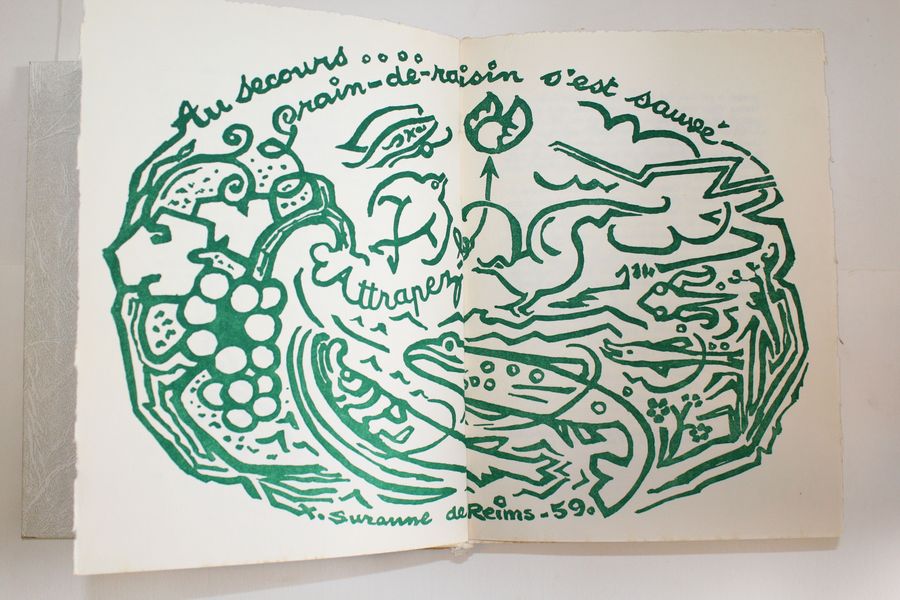 Au secours ....
Grain-de-raisin s'est sauvé
Attrapez le
X. Suzanne de Reims - 59.